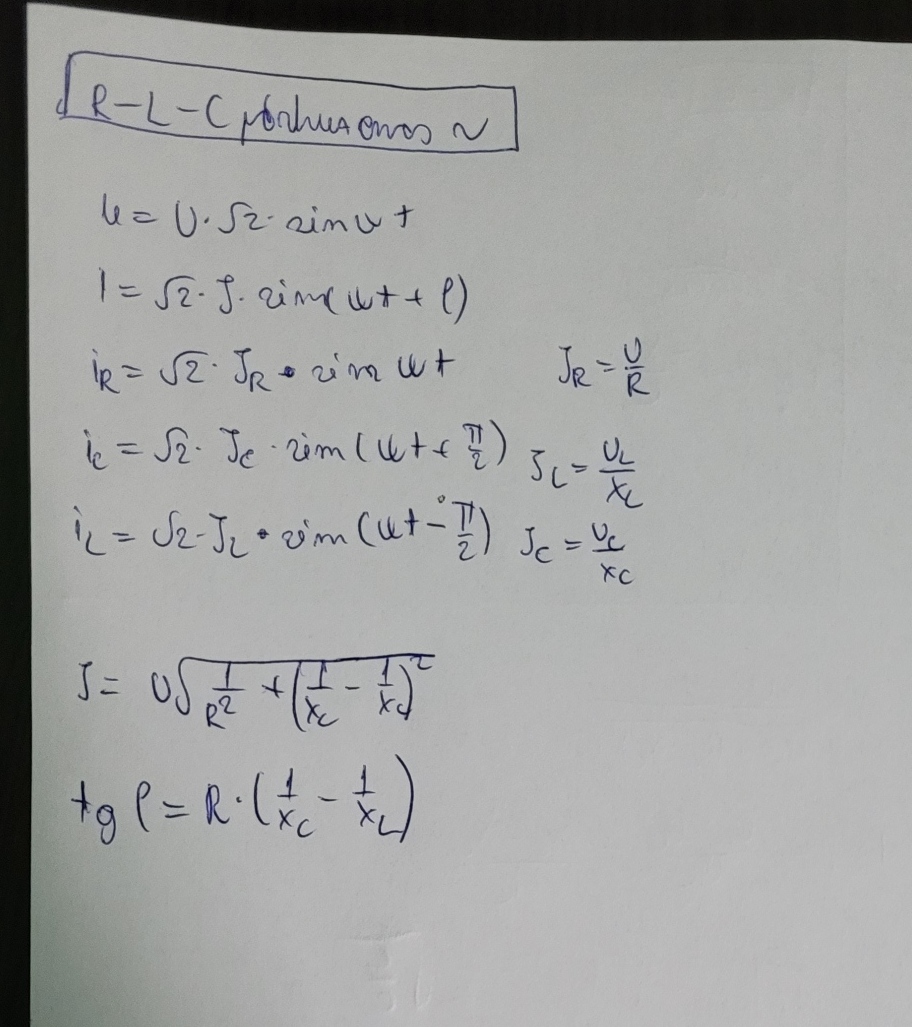 R-L-C ~
u = U·√2·sin ωt
i = √2·J·sin(ωt + φ)
iR = √2·JR·sin ωt JR = U/R
ic = √2·Jc·sin(ωt + π/2) JL = UL/XL
iL = √2·JL·sin(ωt - π/2) Jc = Uc/xc
J = U√(1/R² + (1/xc - 1/xL)²)
tg φ = R·(1/xc - 1/xL)